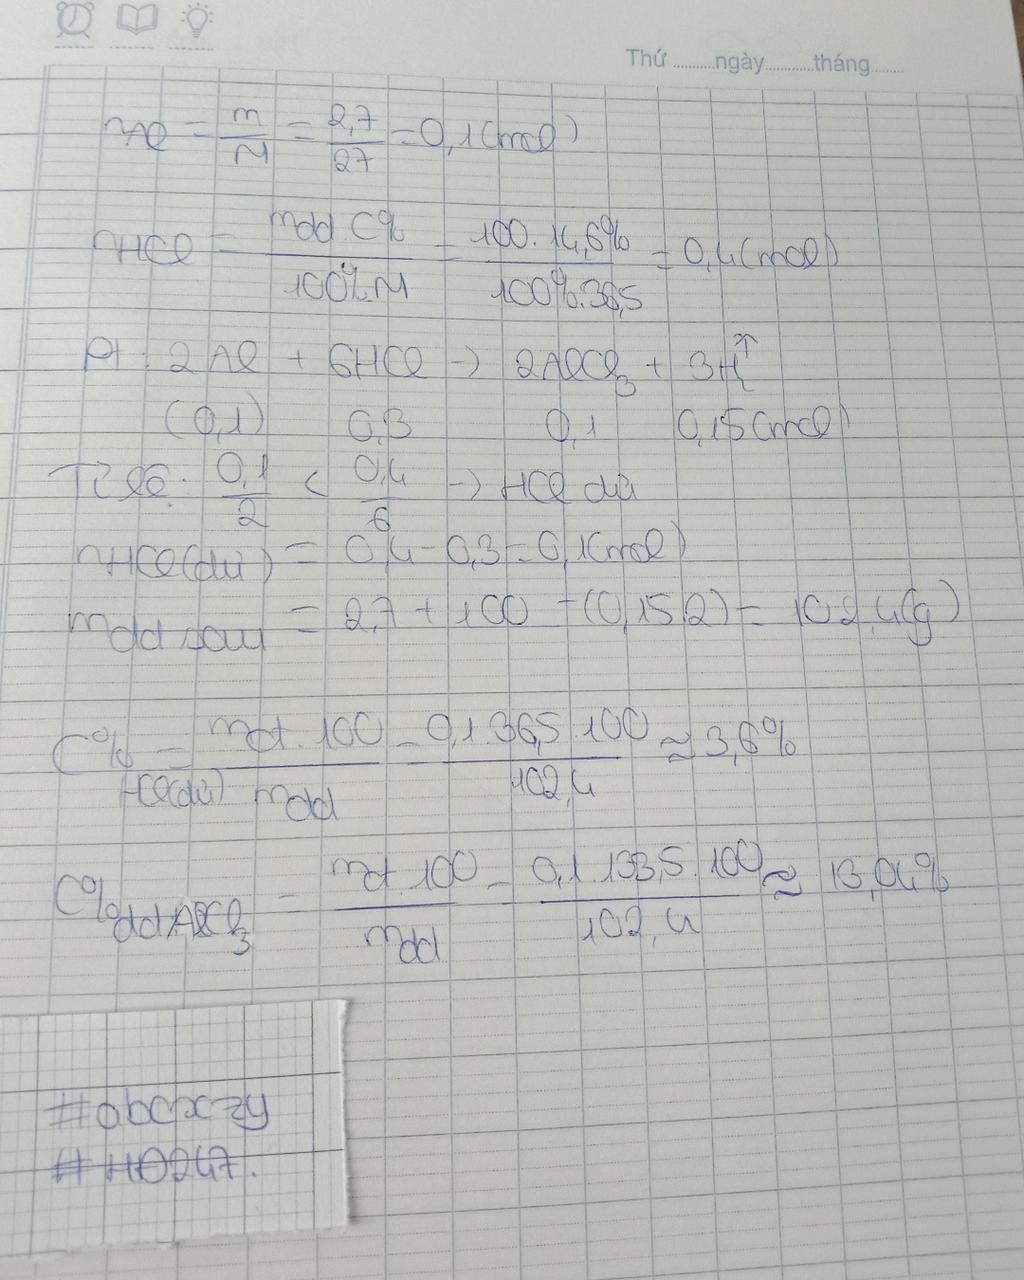 Thứ ..........ngày............tháng........
nAl = m/M = 2,7/27 = 0,1(mol)
nHCl = mdd.C%/100%.M = 100.14,6%/100%.36,5 = 0,4(mol)
Pt: 2Al + 6HCl -> 2AlCl₃ + 3H₂↑
(0,1) 0,3 0,1 0,15(mol)
Tỉ lệ: 0,1/2 < 0,4/6 -> HCl dư
nHCl(dư) = 0,4-0,3=0,1(mol)
mdd sau = 2,7 + 100 - (0,15.2) = 102,4(g)
C% HCl(dư) = mct.100/mdd = 0,1.36,5.100/102,4 ≈ 3,6%
C%ddAlCl₃ = mct.100/mdd = 0,1.133,5.100/102,4 ≈ 13,04%
#abcxzy
#H0247.